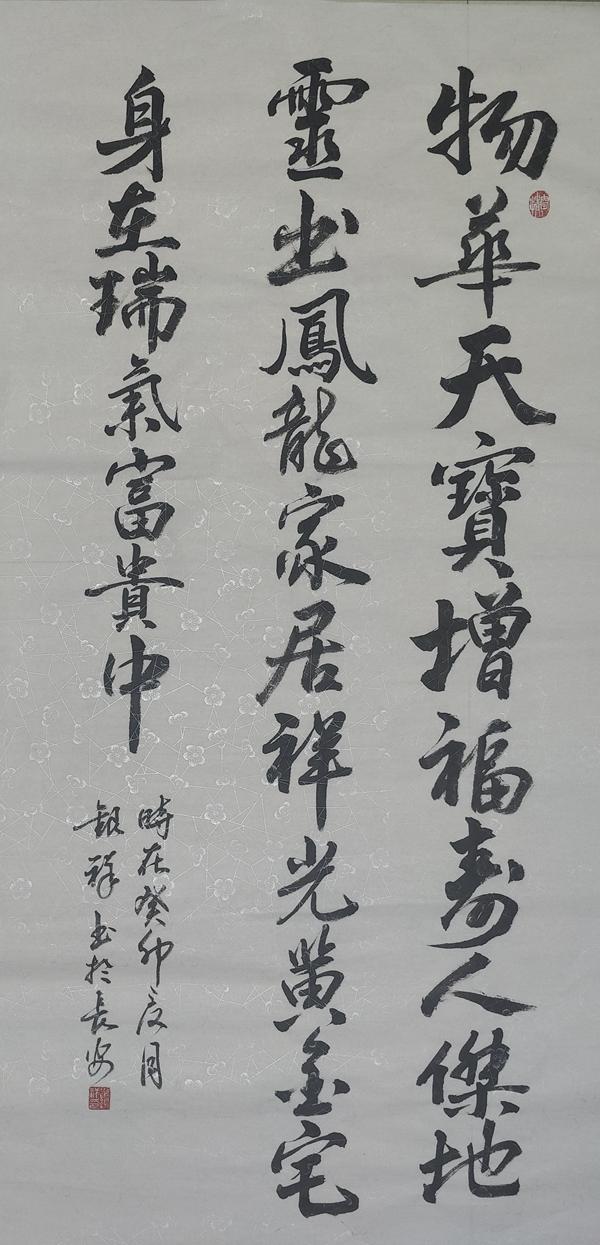 物華天寶增福壽人傑地
靈出鳳龍家居祥光黃金宅
身在瑞氣富貴中
時在癸卯夏月
銀祥书於長安